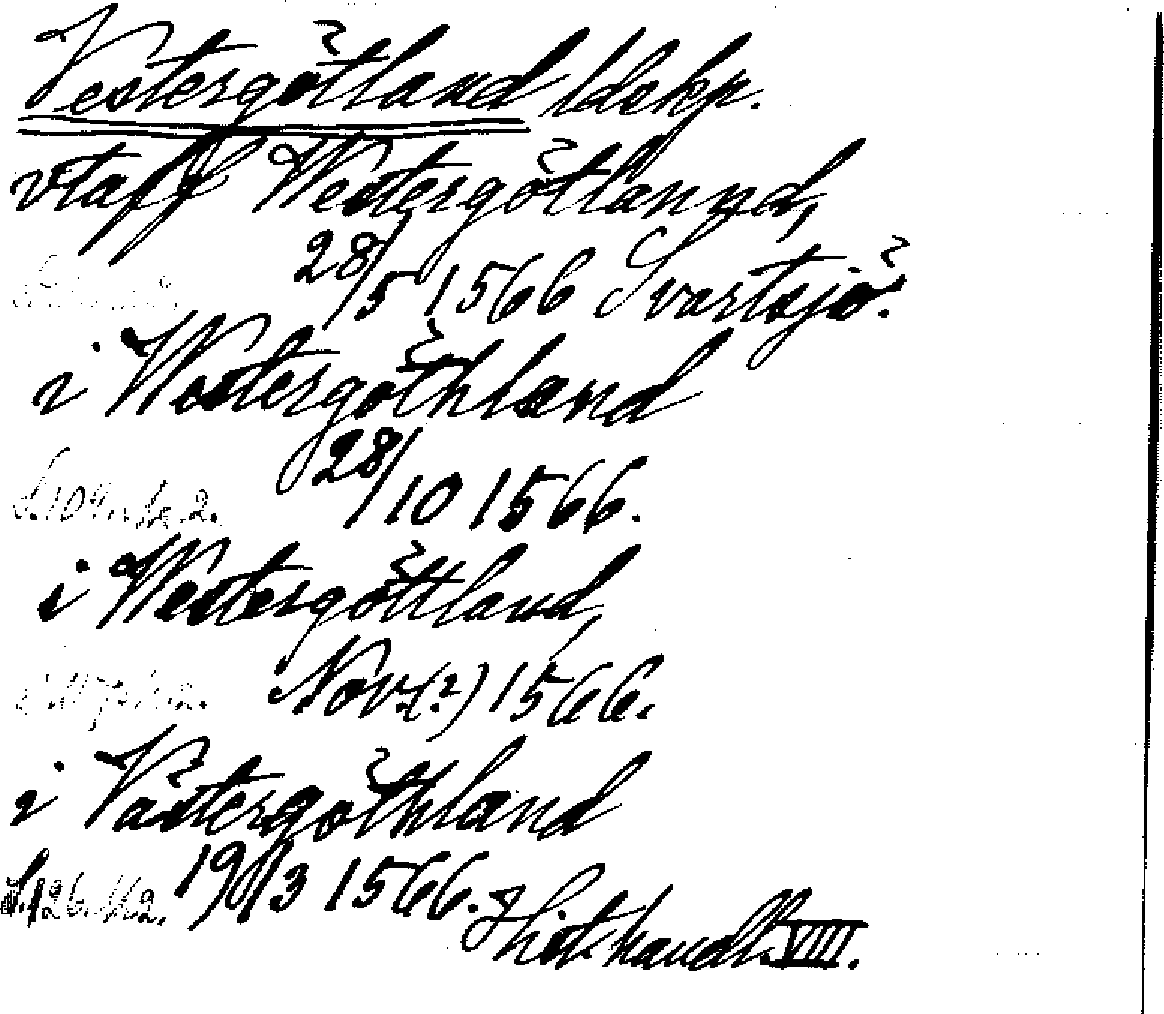 Vestergötland ldskp.
vtaff Westergötlannd,
28/5 1566 Svartsjö.
i Westergöthland
28/10 1566.
S. 109
i Westergöttland,
Nov.(?) 1566.
i Västergöthland
S. 126. 19/13 1566. Hist. handl. VIII.